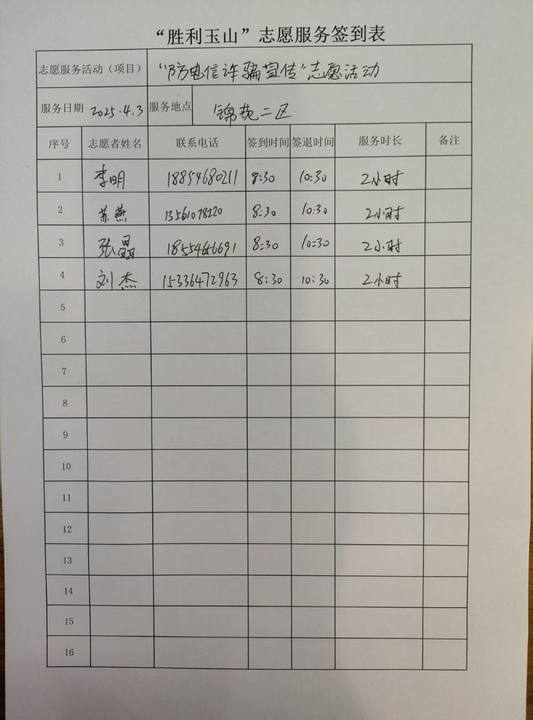 “胜利玉山”志愿服务签到表
志愿服务活动（项目） “防电信诈骗宣传”志愿活动
服务日期 2025.4.3 服务地点 锦苑二区
序号 志愿者姓名 联系电话 签到时间 签退时间 服务时长 备注
1 李明 18854680211 8:30 10:30 2小时
2 苏燕 13561078220 8:30 10:30 2小时
3 张晶 18554646691 8:30 10:30 2小时
4 刘杰 15336472963 8:30 10:30 2小时
5
6
7
8
9
10
11
12
13
14
15
16